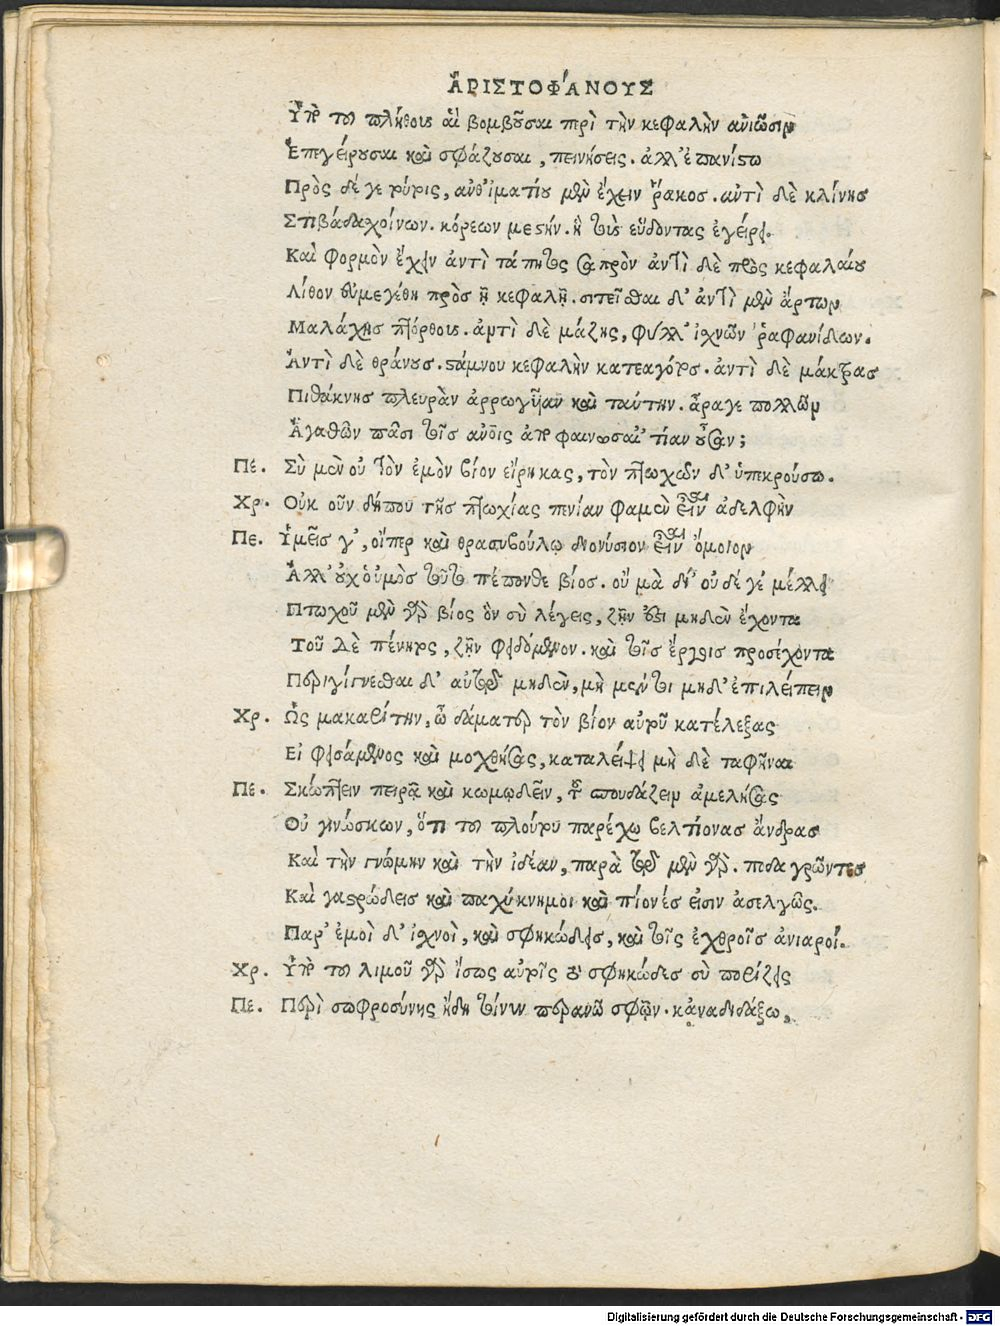 ἈΡΙΣΤΟΦΆΝΟΥΣ
Ὑπὸ του πλήθους αἱ βομβοῦσαι περὶ τὴν κεφαλὴν ἀνιῶσιν
Ἐπεγείρουσαι καὶ σφάζουσαι, πεινήσεις. ἀλλ' ἐπανίστω
Πρὸς δέ γε τούτοις, ἀνθ' ἱματίου μὲν ἔχειν ῥάκος. ἀντὶ δὲ κλίνης
Στιβάδα χοίνων. κόρεων μεστήν. ἣ τοὺς εὕδοντας ἐγείρει.
Καὶ φορμὸν ἔχειν ἀντὶ τάπητος σαπρὸν ἀντὶ δὲ προς κεφαλαίου
Λίθον εὐμεγέθη πρὸς τῇ κεφαλῇ. σιτεῖσθαι δ' ἀντὶ μὲν ἄρτων
Μαλάχης πτόρθους. ἀντὶ δὲ μάζης, φυλλ' ἰχνῶν ῥαφανίδων.
Ἀντὶ δὲ θράνους. στάμνου κεφαλὴν κατεαγότος. ἀντὶ δὲ μάκτρας
Πιθάκνης πλευρὰν ἀρρωγῆαν καὶ ταύτην. ἆραγε πολλῶν
Ἀγαθῶν πᾶσι τοῖς ἀνοις ἀποφαινωσαί τίαν οὖσαν;
Πέ. Σὺ μὲν οὐ τὸν ἐμὸν βίον εἴρηκας, τὸν πτωχῶν δ' ὑπεκρούσω.
Χρ. Οὐκ οὖν δήπου τῆς πτωχίας πενίαν φαμὲν εἶναι ἀδελφὴν
Πε. Ὑμεῖς γ', οἵπερ καὶ θρασυβούλῳ διονύσιον εἶναι ὅμοιον
Ἀλλ' οὐχ οὑμὸς τοῦτο πέπονθε βίος. οὐ μὰ δί' οὐδέ γέ μέλλει
Πτωχοῦ μὲν γὰρ βίος ὃν σὺ λέγεις, ζῆν ἐστι μηδὲν ἔχοντα
Τοῦ δὲ πένητος, ζῆν φειδόμενον. καὶ τοῖς ἔργοις προσέχοντα
Περιγίγνεσθαι δ' αὐτῷ μηδὲν, μὴ μέντοι μηδ' ἐπιλείπειν
Χρ. Ὡς μακαρίτην, ὦ δάματερ τὸν βίον αὐτοῦ κατέλεξας
Εἰ φεισάμενος καὶ μοχθήσας, καταλείψει μὴ δὲ ταφῆναι
Πέ. Σκώπτειν πειρᾷ καὶ κωμῳδεῖν, τοῦ σπουδάζειν ἀμελήσας
Οὐ γινώσκων, ὅτι του πλούτου παρέχω βελτίονας ἄνδρας
Καὶ τὴν γνώμην καὶ τὴν ἰδέαν, παρὰ τῷ μὲν γὰρ. ποδαγρῶντες
Καὶ γαστρώδεις καὶ παχύκνημοι καὶ πίονές εἰσιν ἀσελγῶς.
Παρ' ἐμοὶ δ' ἰχνοὶ, καὶ σφηκώδεις, καὶ τοῖς ἐχθροῖς ἀνιαροί.
Χρ. Ὑπὸ του λιμοῦ γὰρ ἴσως αὐτοῖς τὸ σφηκῶδες σὺ πορίζεις
Πε. Περὶ σωφροσύνης ἤδη τοίνυν περανῶ σφῷν. κἀναδιδάξω,
Digitalisierung gefördert durch die Deutsche Forschungsgemeinschaft - DFG